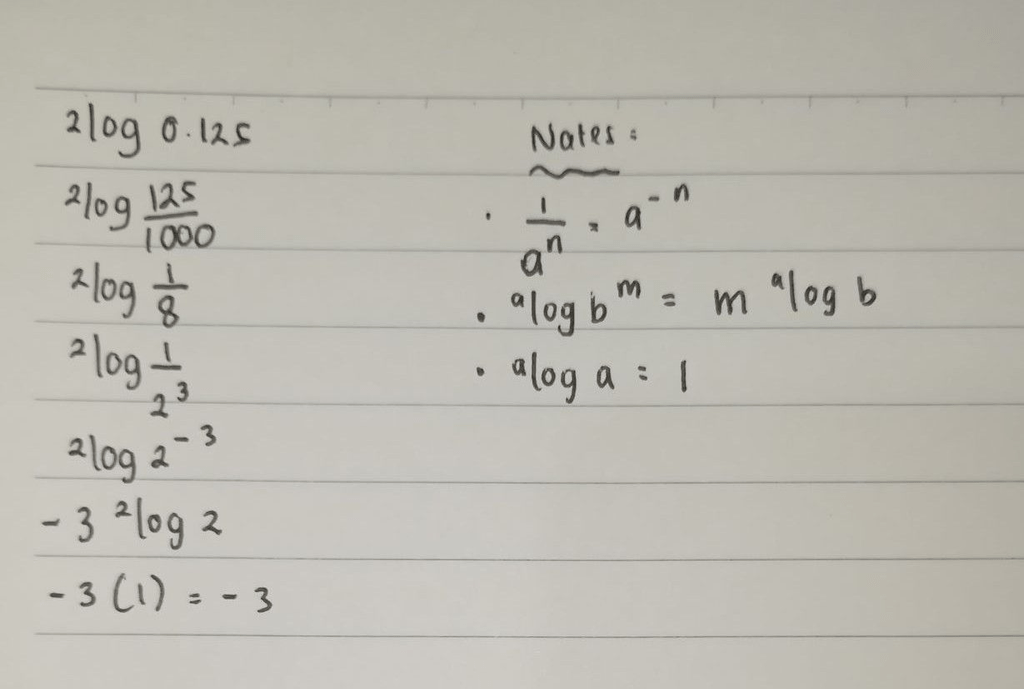 ²log 0.125
²log 125/1000
²log 1/8
²log 1/2³
²log 2⁻³
-3 ²log 2
-3 (1) = -3
Notes:
· 1/aⁿ = a⁻ⁿ
· ᵃlog bᵐ = m ᵃlog b
· ᵃlog a = 1